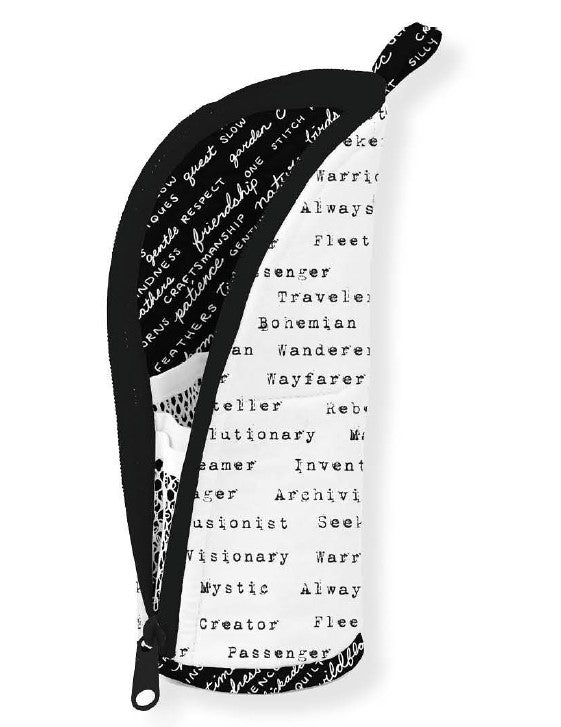 SILLY
Warri
Always
Fleet
senger
Traveler
Bohemian
an Wanderer
Wayfarer
teller Reb
lutionary Ma
eamer Invent
ager Archivi
usionist Seek
Visionary Warr
Mystic Alway
Creator Flee
r Passenger
quest SLOW
garden
gentle RESPECT
ONE STITCH
friendship
birds
CRAFTSMANSHIP
patience GENT
FEATHERS
QUILT
wildflo